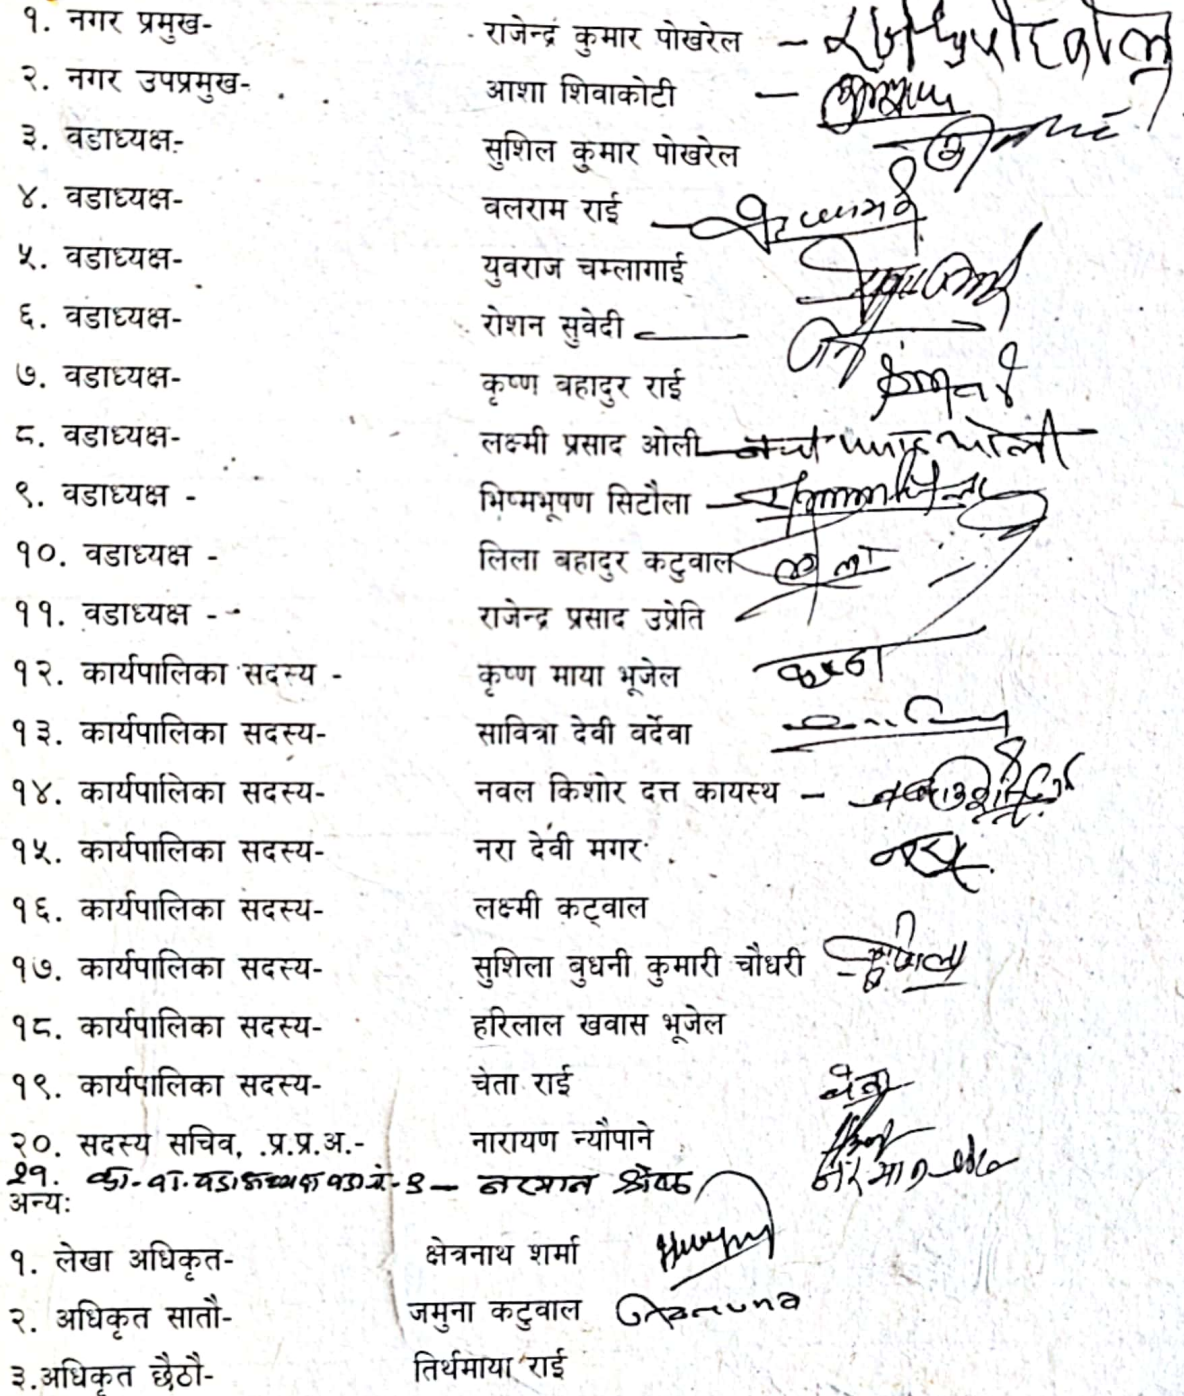 १. नगर प्रमुख- राजेन्द्र कुमार पोखरेल –
२. नगर उपप्रमुख- आशा शिवाकोटी –
३. वडाध्यक्ष- सुशिल कुमार पोखरेल
४. वडाध्यक्ष- वलराम राई
५. वडाध्यक्ष- युवराज चम्लागाई
६. वडाध्यक्ष- रोशन सुवेदी
७. वडाध्यक्ष- कृष्ण बहादुर राई
८. वडाध्यक्ष- लक्ष्मी प्रसाद ओली
९. वडाध्यक्ष - भिष्मभूषण सिटौला
१०. वडाध्यक्ष - लिला बहादुर कटुवाल
११. वडाध्यक्ष - राजेन्द्र प्रसाद उप्रेति
१२. कार्यपालिका सदस्य - कृष्ण माया भूजेल
१३. कार्यपालिका सदस्य- सावित्रा देवी वर्देवा
१४. कार्यपालिका सदस्य- नवल किशोर दत्त कायस्थ –
१५. कार्यपालिका सदस्य- नरा देवी मगर
१६. कार्यपालिका सदस्य- लक्ष्मी कट्वाल
१७. कार्यपालिका सदस्य- सुशिला वुधनी कुमारी चौधरी सुशिला
१८. कार्यपालिका सदस्य- हरिलाल खवास भूजेल
१९. कार्यपालिका सदस्य- चेता राई चेता
२०. सदस्य सचिव, .प्र.प्र.अ.- नारायण न्यौपाने
२१. का.वा.वडाअध्यक्ष वडा नं-३ – नरमान श्रेष्ठ
अन्य:
१. लेखा अधिकृत- क्षेत्रनाथ शर्मा
२. अधिकृत सातौ- जमुना कटुवाल
३.अधिकृत छैठौ- तिर्थमाया राई